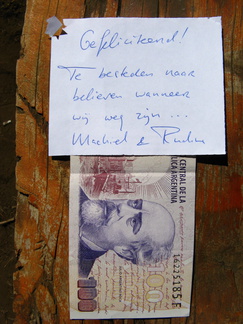 Gefeliciteerd!
Te besteden naar
believen wanneer
wij weg zijn ...
Machiel &
CENTRAL DE LA
LICA ARGENTINA
16225185 E
100